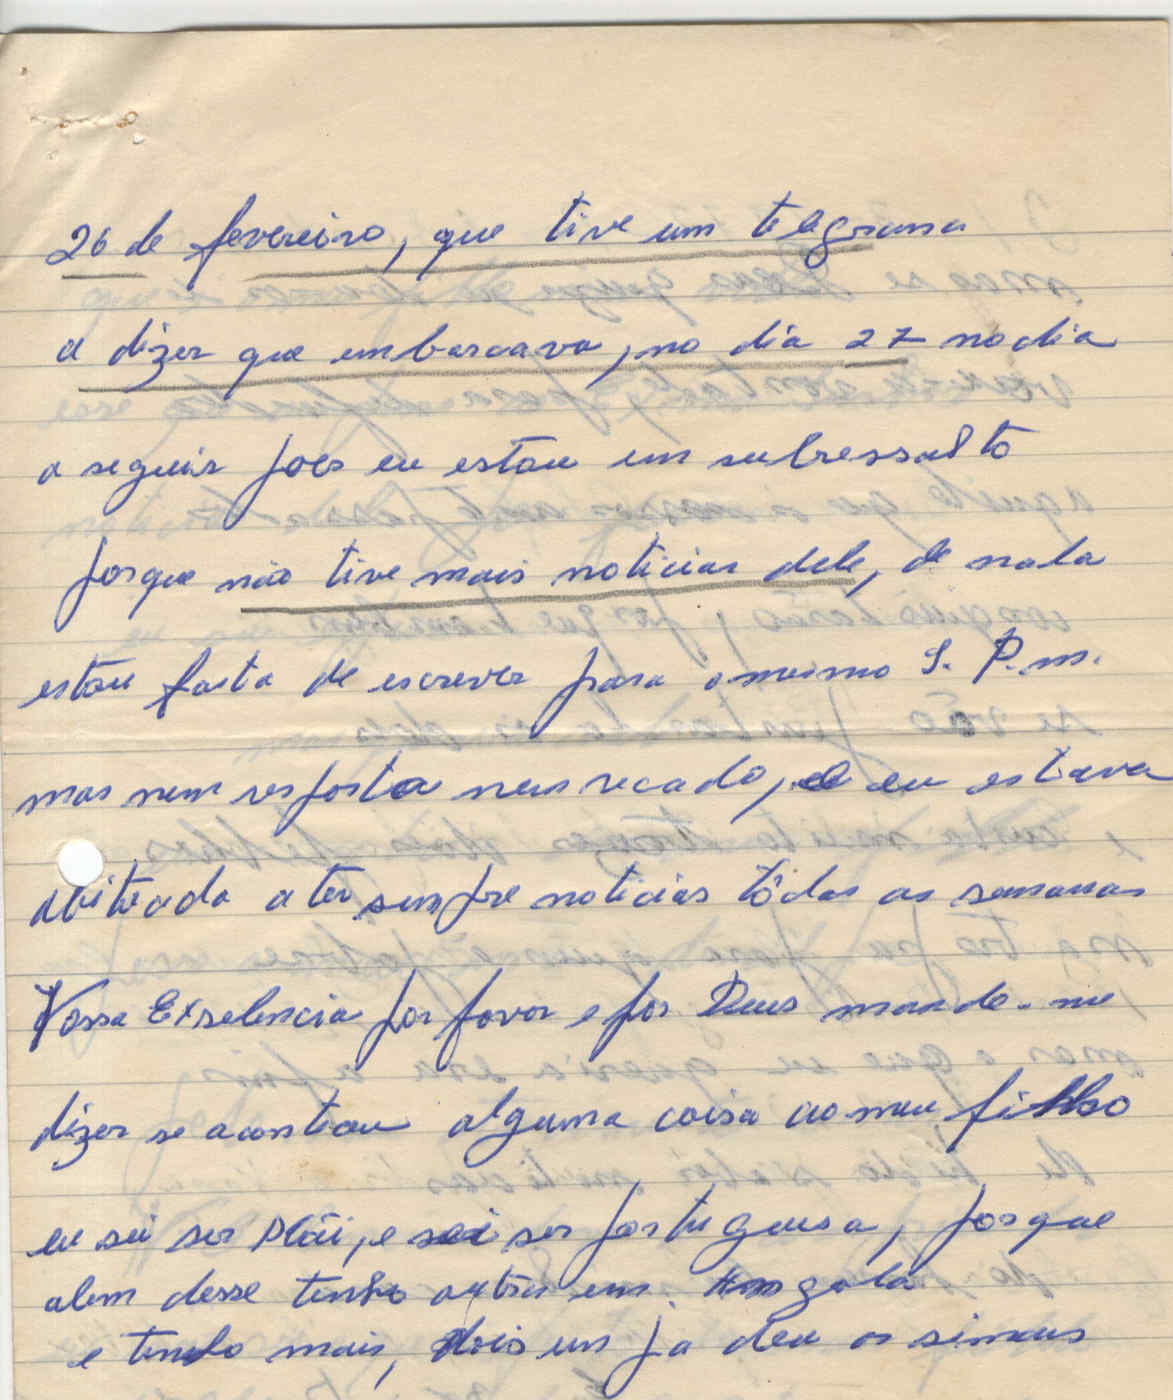 26 de fevereiro, que tive um telegrama
a dizer que embarcava, no dia 27 no dia
a seguir pois eu estou em subressalto
porque não tive mais noticias dele, de nada
estou farta de escrever para o mesmo S. P. m.
mas nem resposta nem recado, e eu estava
abituada a ter sempre noticias tôdas as semanas
Vossa Exselencia por favor e por Deus mande-me
dizer se aconteou alguma coisa ao meu filho
eu sei ser Mãi, e sei ser portuguesa, porque
alem desse tenho outro em Angola
e tenho mais, dois um ja deu os